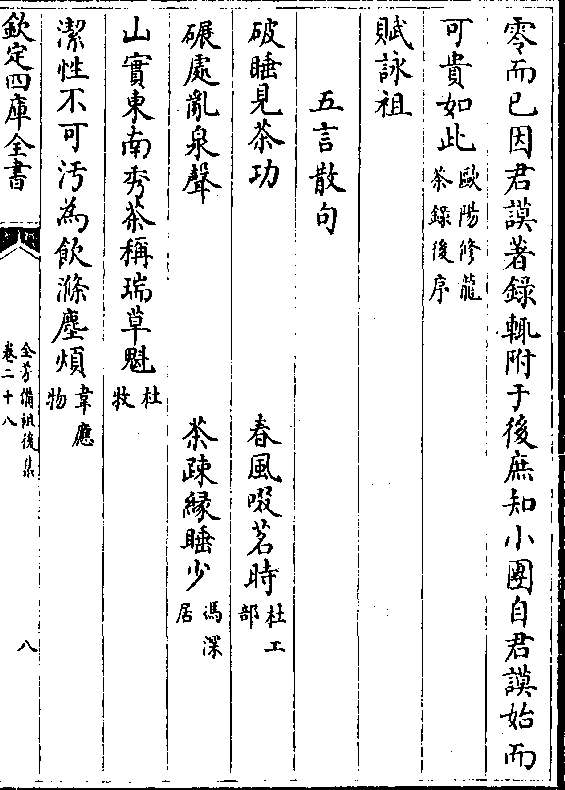 零而已因君謨著錄輒附于後庶知小團自君謨始而
可貴如此歐陽修龍茶錄後序
賦詠祖
五言散句
破睡見茶功　春風啜茗時杜工部
碾處亂泉聲　茶疎緣睡少馮深居
山實東南秀茶稱瑞草魁杜牧
潔性不可汚為飲滌塵煩韋應物
欽定四庫全書
全芳備祖後集
卷二十八
八